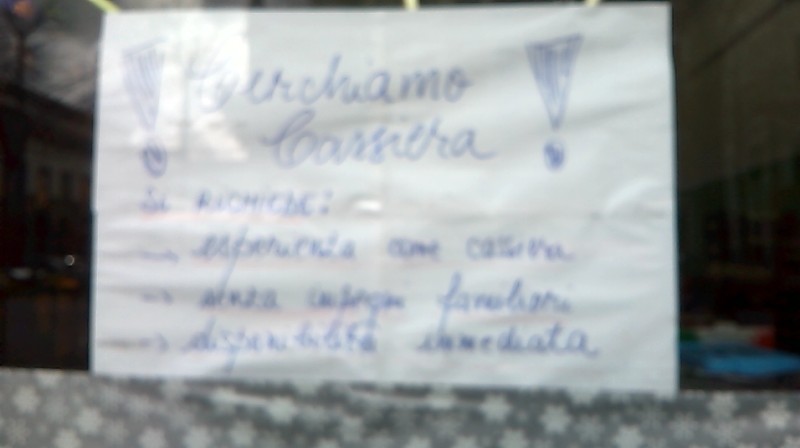 ! Cerchiamo !
Cassiera
SI RICHIEDE:
→ esperienza come cassiera
→ senza impegni familiari
→ disponibilità immediata